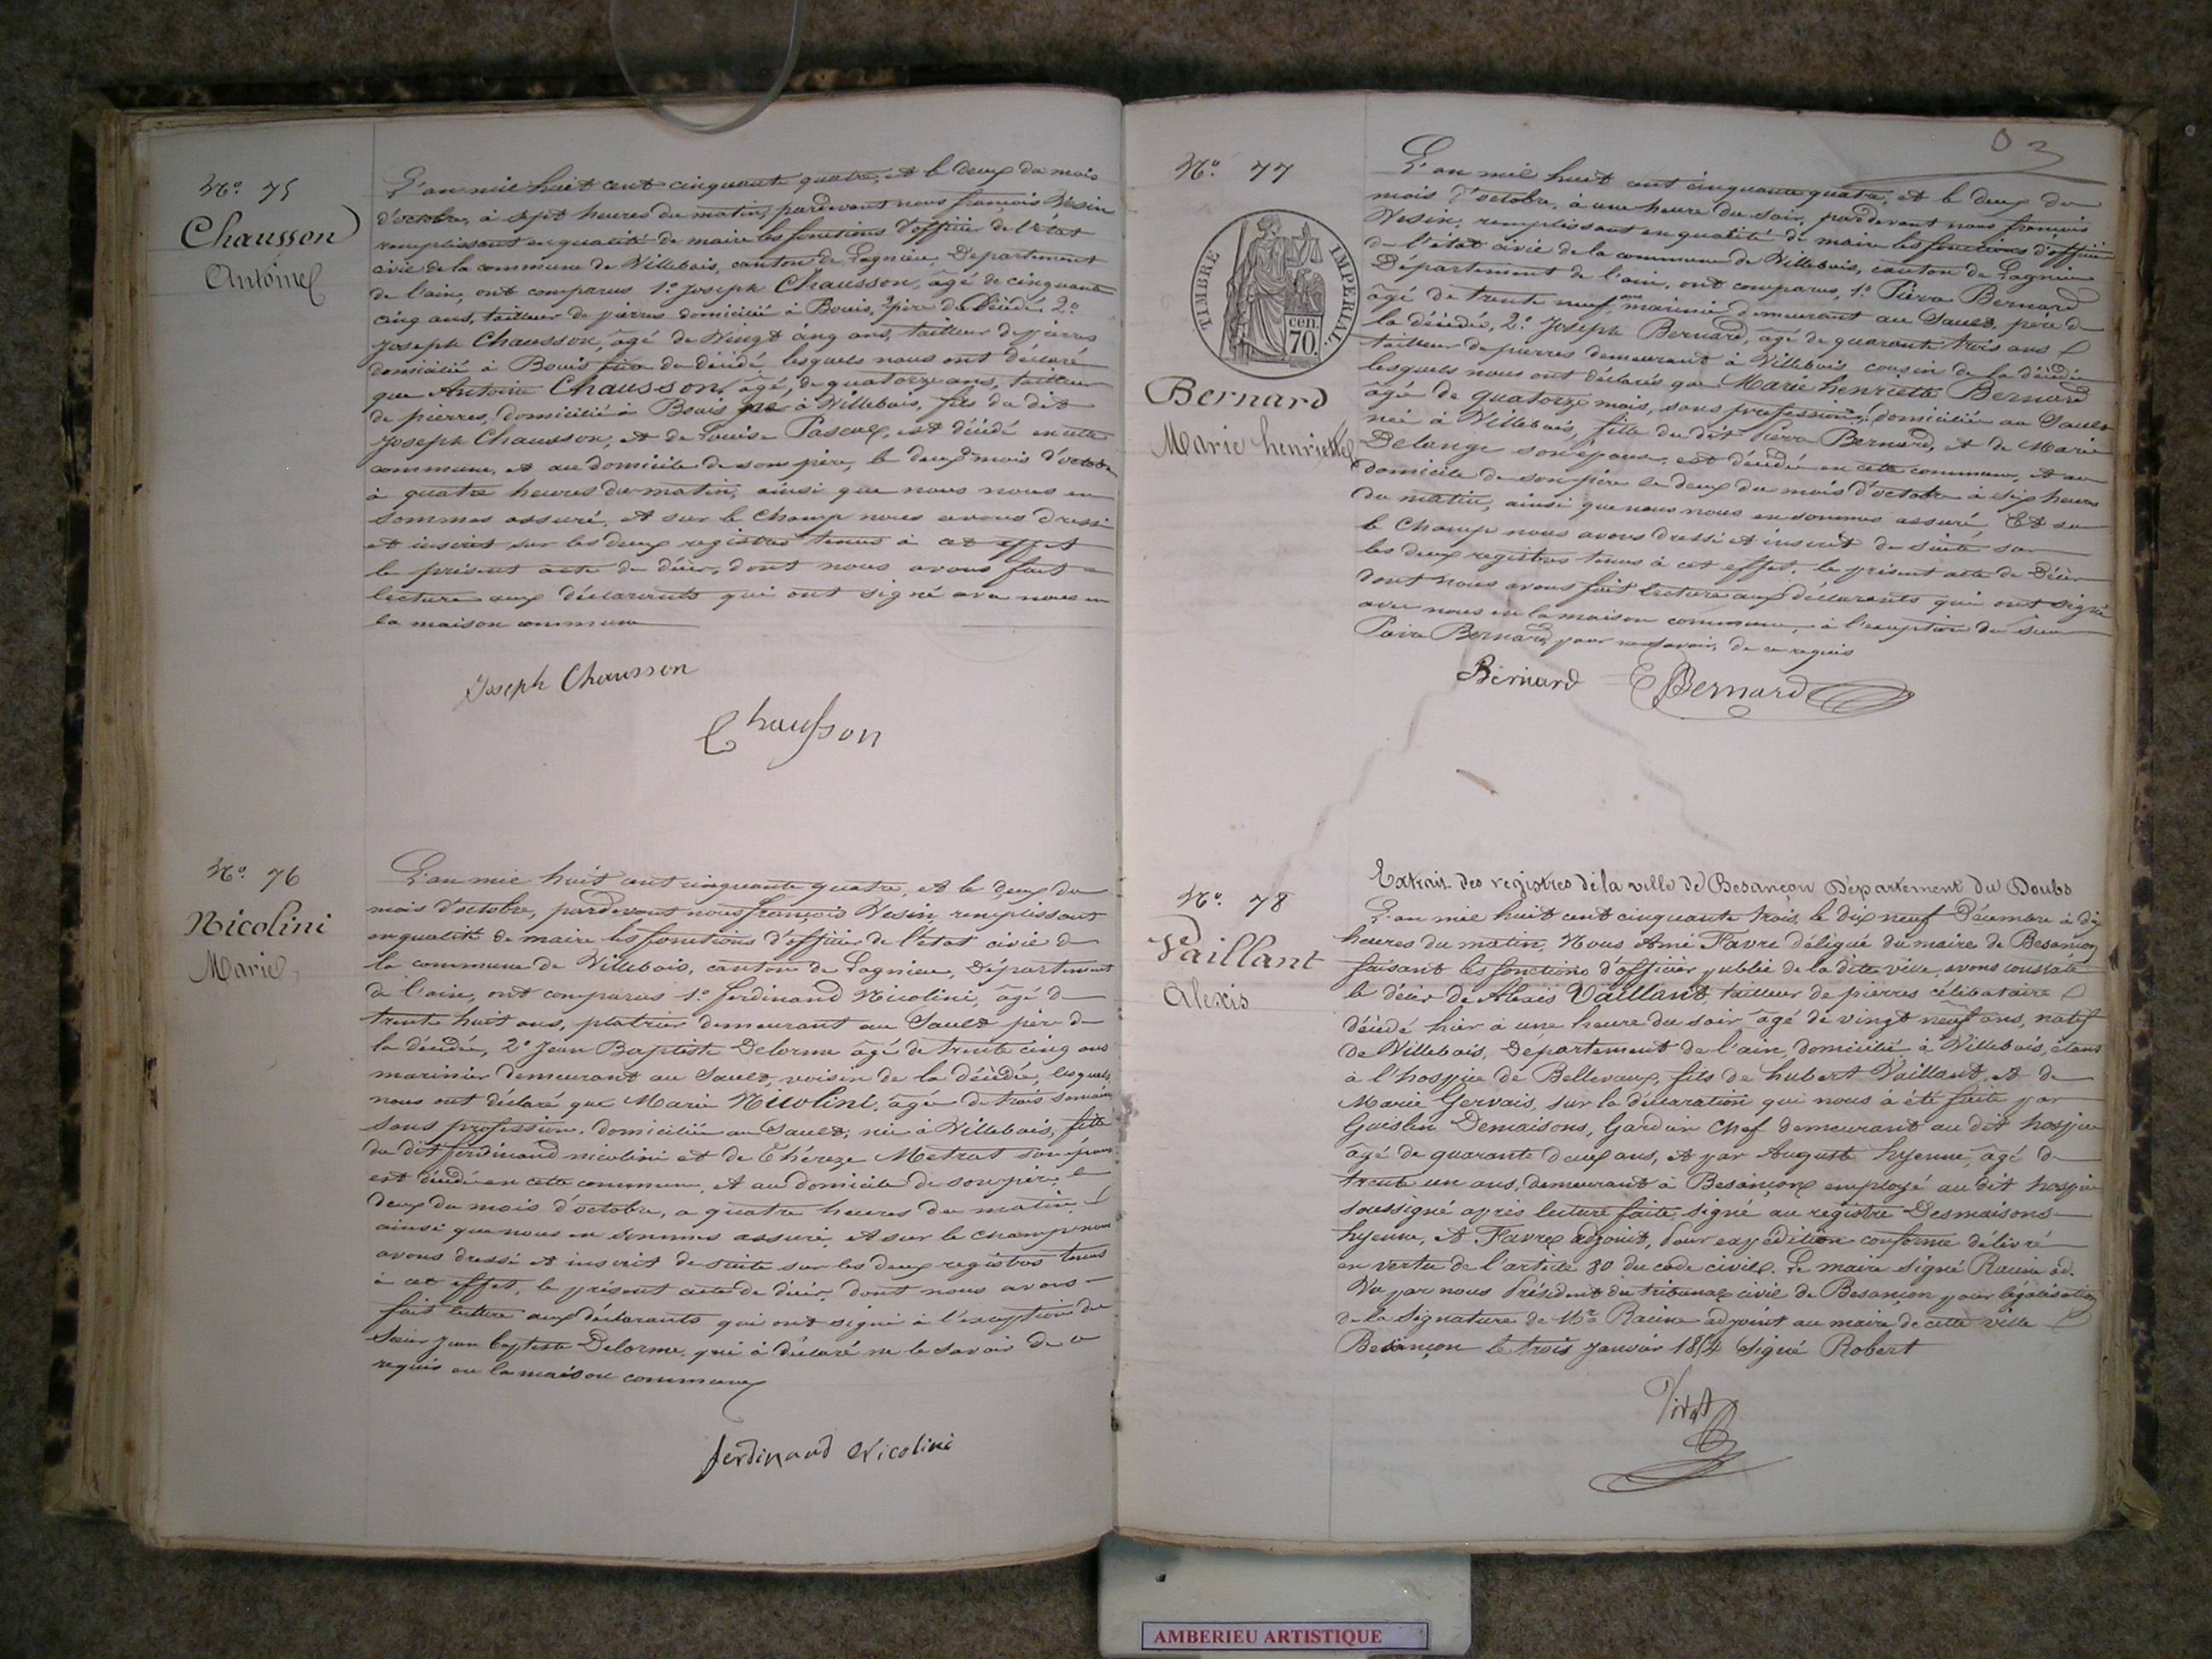 N.° 75
Chausson
Antoine
L'an mil huit cent cinquante quatre, et le deux du mois
d'octobre, à sept heures du matin, pardevant nous françois Vésin
remplissant en qualité de maire les fonctions d'officier de l'état
civil de la commune de Villebois, canton de Lagnieu, Departement
de l'ain, ont comparus 1.° Joseph Chausson, âgé de cinquante
cinq ans, tailleur de pierres domicilié à Bouis, père du décédé 2.°
Joseph Chausson, âgé de vingt cinq ans, tailleur de pierres
domicilié à Bouis du décédé lesquels nous ont déclaré
que Antoine Chausson, âgé de quatorze ans, tailleur
de pierres, domicilié à Bouis né à Villebois, fils du dit
Joseph Chausson, et de Louise Pascal, est décédé en cette
commune, et au domicile de son père, le deux mois d'octobre
à quatre heures du matin, ainsi que nous nous en
sommes assuré, et sur le champ nous avons dressé
et inscrit sur les deux registres tenus à cet effet
le présent acte de décès, dont nous avons fait
lecture aux déclarants qui ont signé avec nous en
la maison commune
Joseph Chausson
Chausson
N.° 76
Nicolini
Marie
L'an mil huit cent cinquante quatre, et le deux du
mois d'octobre, pardevant nous françois Vesin, remplissant
en qualité de maire les fonctions d'officier de l'état civil de
la commune de Villebois, canton de Lagnieu, Département
de l'ain, ont comparus 1.° ferdinand Nicolini, âgé de
trente huit ans, platrier demeurant au Sault père de
la décédée, 2.° Jean Baptiste Delorme âgé de trente cinq ans
marinier demeurant au Sault, voisin de la décédée, lesquels
nous ont déclaré que Marie Nicolini, âgée de trois semaines
sans profession, domiciliée au Sault, née à Villebois, fille
du dit ferdinand nicolini et de Thérèze Metrat son épouse
est décédée en cette commune, et au domicile de son père, le
deux du mois d'octobre, a quatre heures du matin,
ainsi que nous en sommes assuré, et sur le champ nous
avons dressé et inscrit de suite sur les deux registres tenus
à cet effet, le présent acte de décès, dont nous avons
fait lecture aux déclarants qui ont signé à l'exception du
Sieur Jean baptiste Delorme, qui à déclaré ne le savoir de ce
requis en la maison commune
ferdinand Nicolini
03
N.° 77
TIMBRE IMPERIAL
cen. 70.
Bernard
Marie henriette
L'an mil huit cent cinquante quatre, et le deux du
mois d'octobre, à une heure du soir, pardevant nous françois
Vesin, remplissant en qualité de maire les fonctions d'officier
de l'état civil de la commune de Villebois, canton de Lagnieu
Département de l'ain, ont comparus, 1.° Pierre Bernard
âgé de trente neuf ans marinié demeurant au Sault, père de
la décédée, 2.° Joseph Bernard, âgé de quarante trois ans
tailleur de pierres demeurant à Villebois cousin de la décédée
lesquels nous ont déclarés que Marie henriette Bernard
âgée de quatorze mois, sans profession, domiciliée au Sault
née à Villebois, fille du dit Pierre Bernard, et de Marie
Delange son épouse, est décédée en cette commune, et au
domicile de son père le deux du mois d'octobre à six heures
du matin, ainsi que nous nous en sommes assuré, Et sur
le champ nous avons dressé et inscrit de suite sur
les deux registres tenus à cet effet, le présent acte de Décès
dont nous avons fait lecture aux déclarants qui ont signé
avec nous en la maison commune, à l'exception du sieur
Pierre Bernard, pour ne savoir, de ce requis
Bernard Bernard
N.° 78
Vaillant
Alexis
Extrait des registres de la ville de Besançon Département du Doubs
L'an mil huit cent cinquante trois, le dix neuf Décembre à dix
heures du matin, Nous Amé Favre délégué du maire de Besançon
faisant les fonctions d'officier public de la dite ville, avons constaté
le décès de Alexis Vaillant, tailleur de pierres célibataire
décédé hier à une heure du soir âgé de vingt neuf ans, natif
de Villebois, Département de l'ain, domicilié à Villebois, étant
à l'hospice de Bellevaux, fils de hubert Vaillant, et de
Marie Gervais, sur la déclaration qui nous à été faite par
Guislin Demaisons, Gardien Chef demeurant au dit hospice
âgé de quarante deux ans, et par Auguste hyenne, âgé de
trente un ans, demeurant à Besançon employé au dit hospice
soussigné après lecture faite, signé au registre Desmaisons
hyenne, et Favre adjoint, Pour expédition conforme délivré
en vertu de l'article 80 du code civil. Le maire signé Racine ad.
Vu par nous Président du tribunal civil de Besançon pour légalisation
de la signature de Mr. Racine adjoint au maire de cette ville
Besançon le trois Janvier 1854 Signé Robert
AMBERIEU ARTISTIQUE